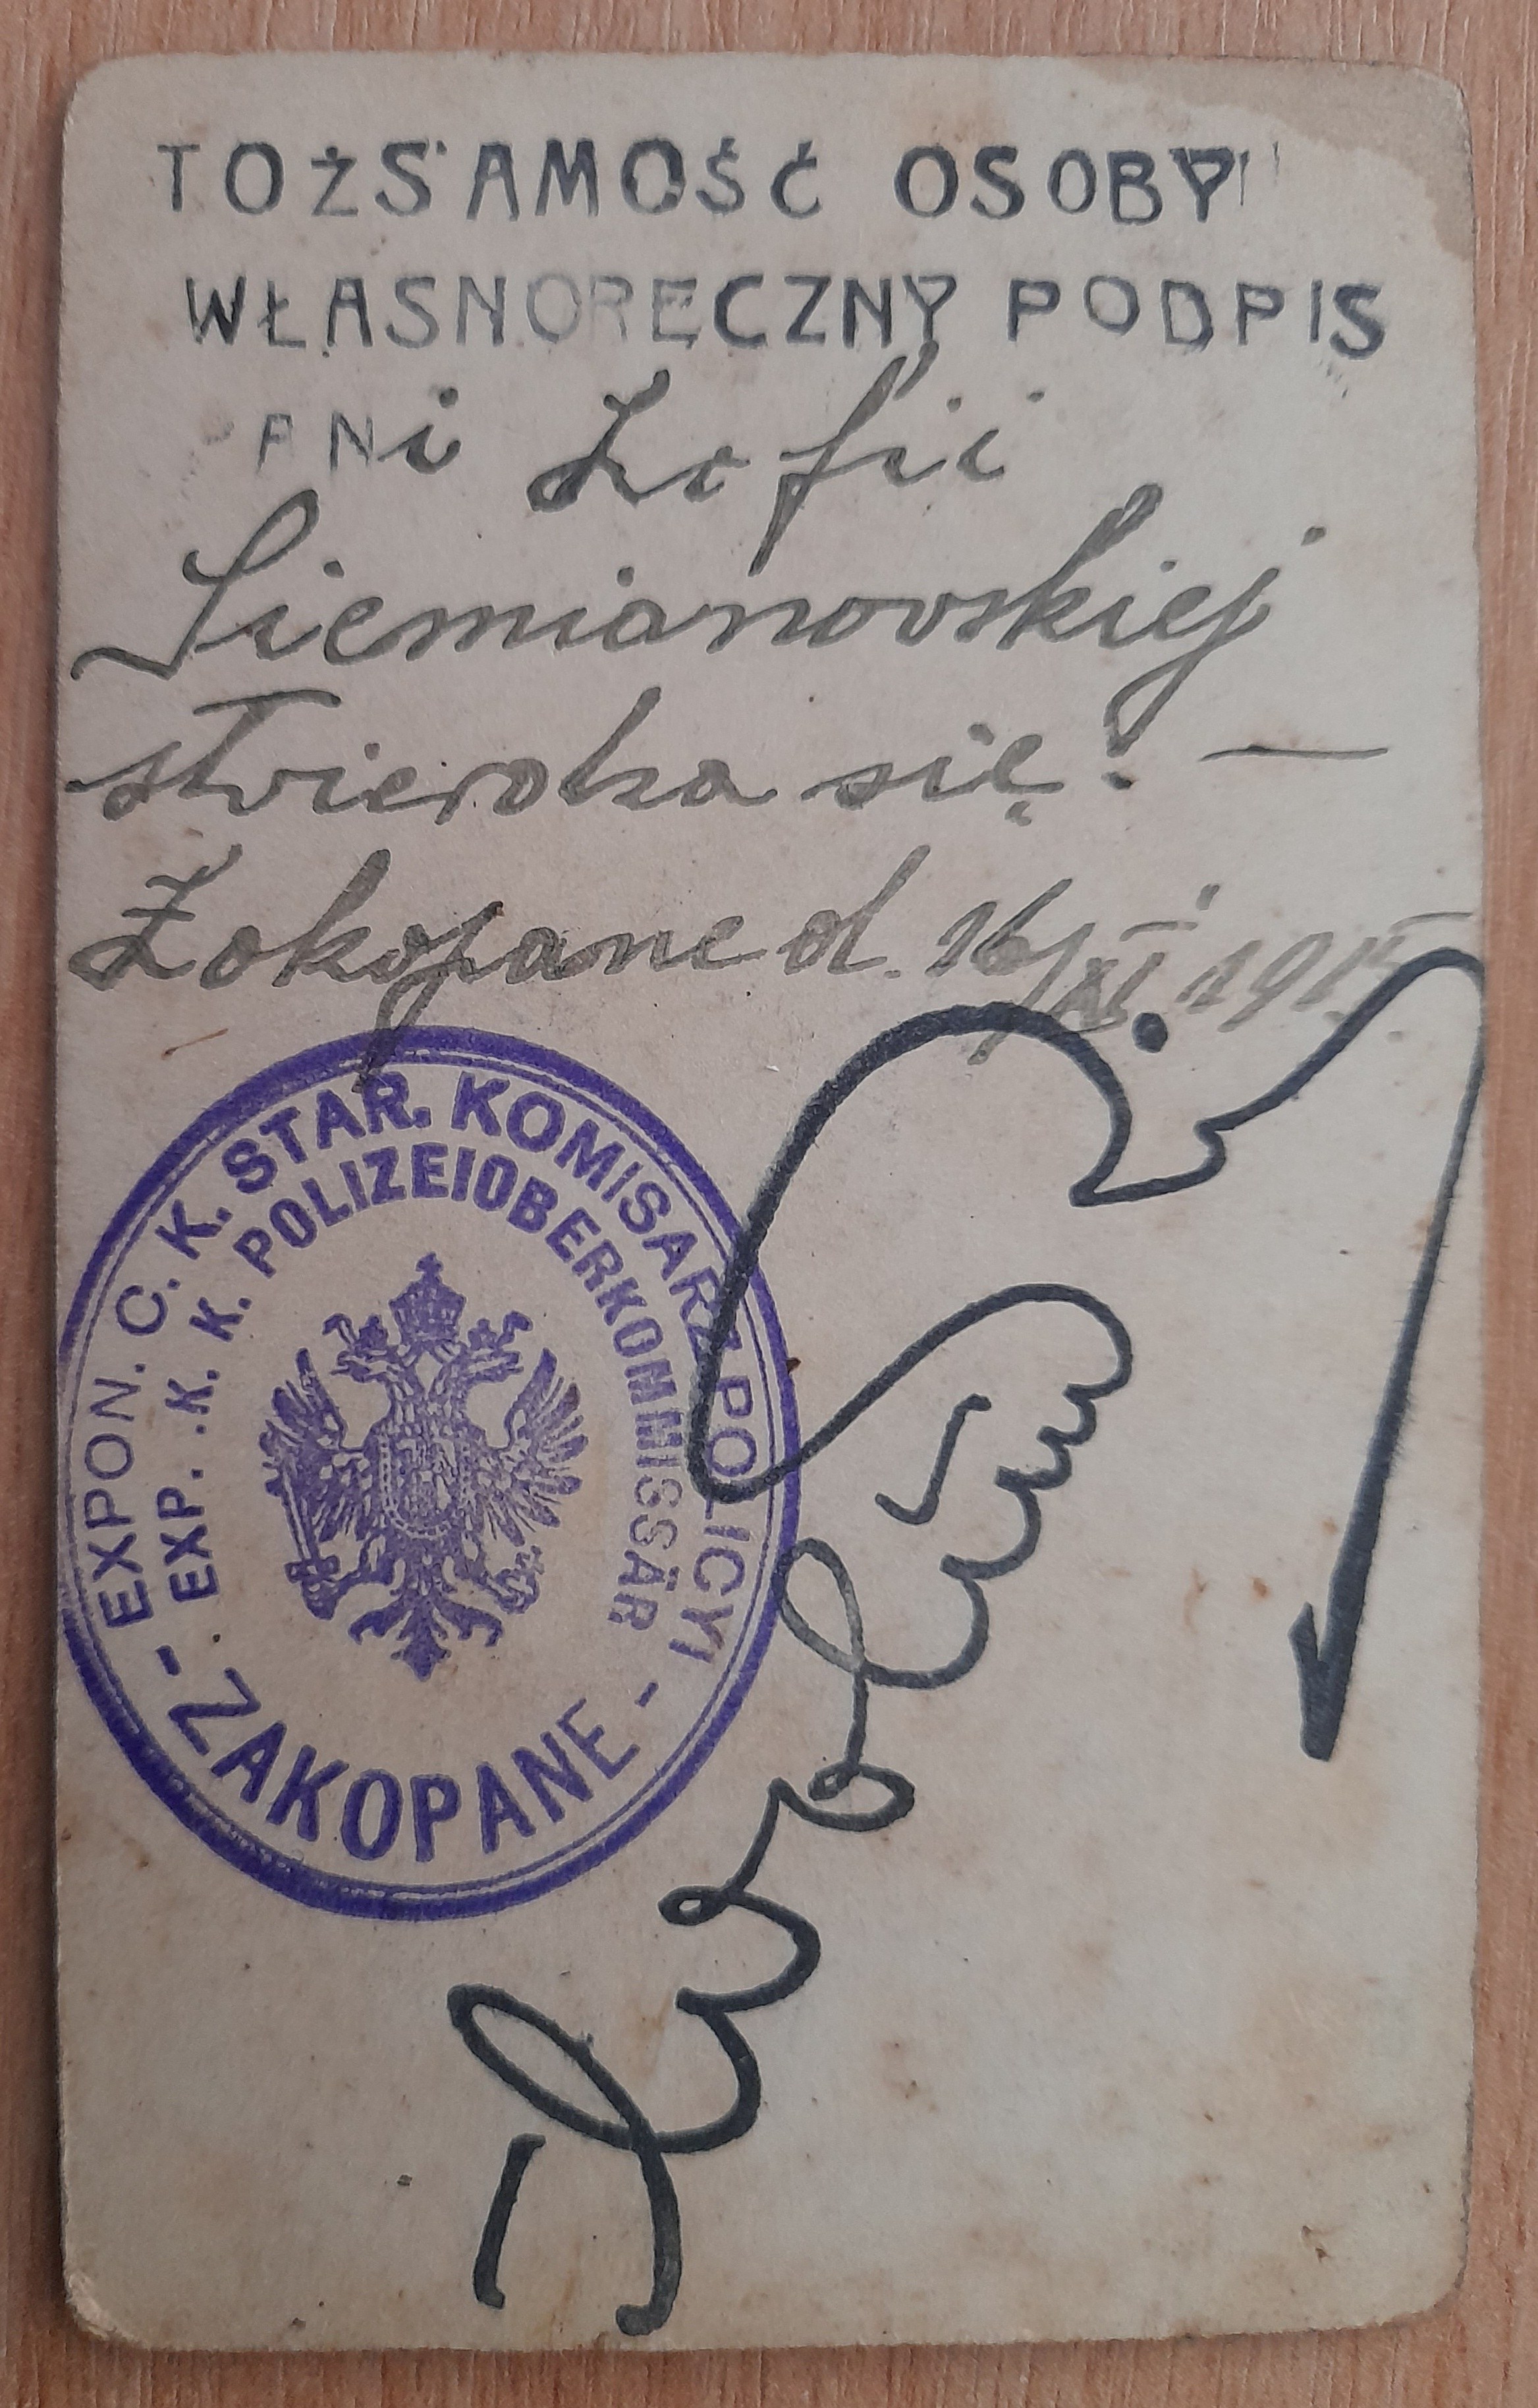 TOŻSAMOŚĆ OSOBY
WŁASNORĘCZNY PODPIS
PANi Zofii
Siemianowskiej
stwierdza się! —
Zakopane d. 16/XI 1915
EXPON. C. K. STAR. KOMISARZ POLICYI
EXP. K. K. POLIZEIOBERKOMMISSÄR
- ZAKOPANE -